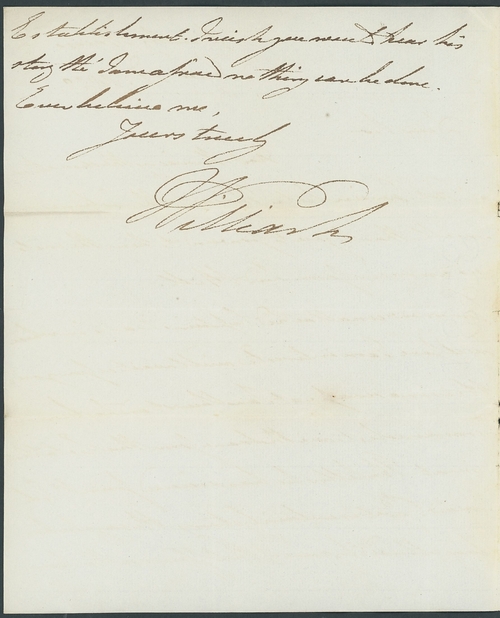 Establishment. I wish you would hear his
story tho' I am afraid nothing can be done.
Ever believe me,
Yours truly
William